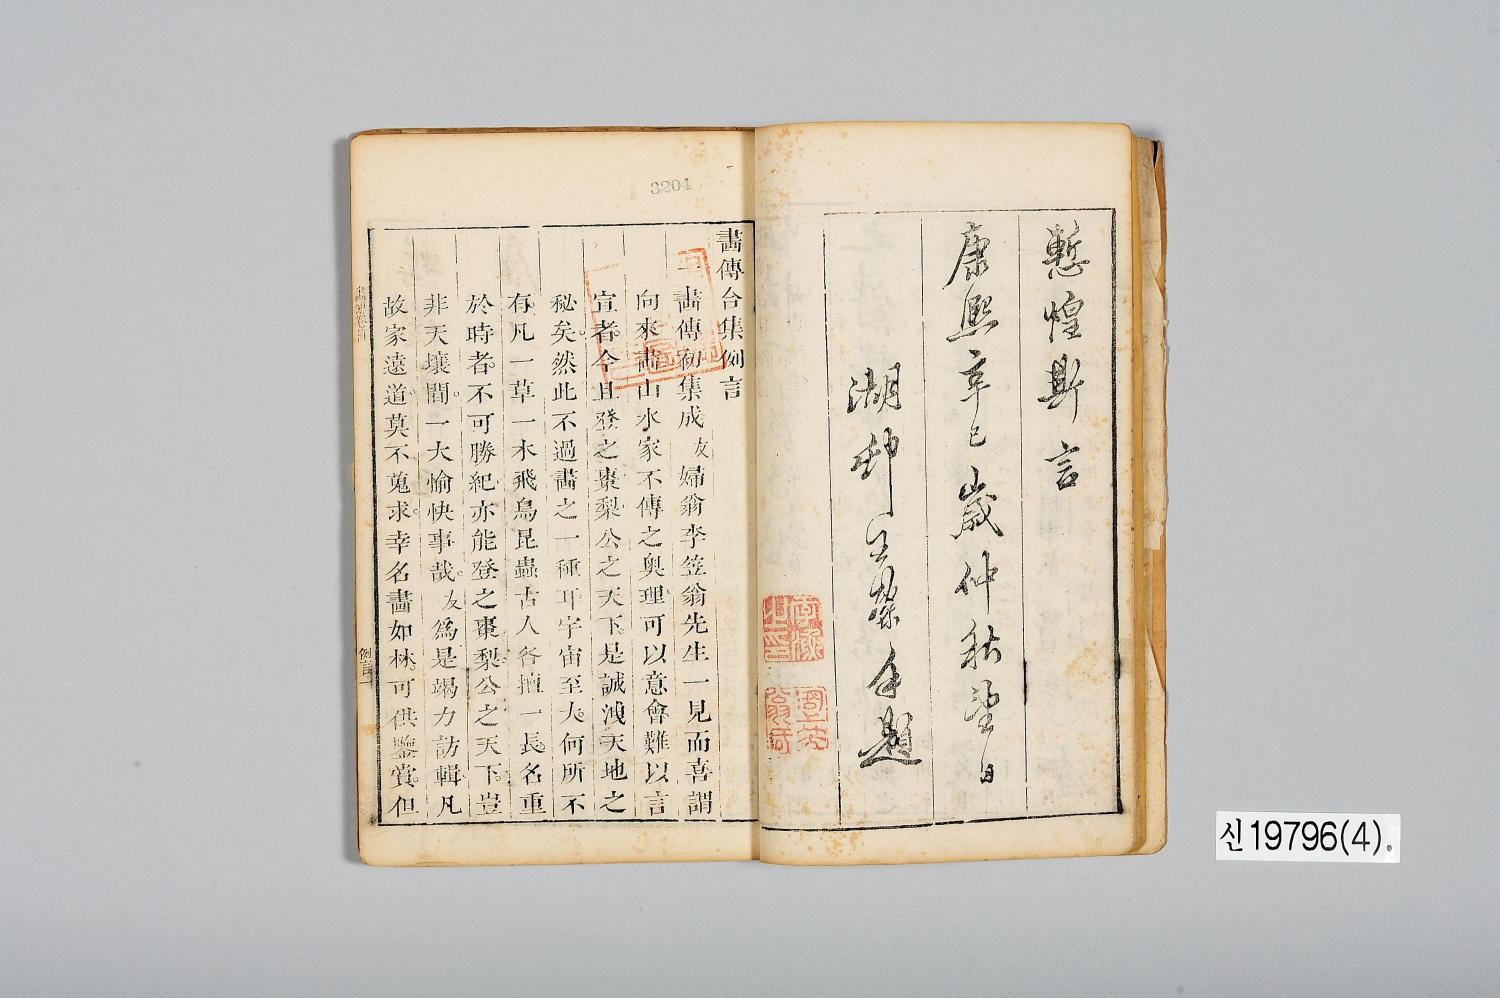 慙惶斯言
康熙辛巳歲仲秋望日
湖邨王槩手題
3204
畫傳合集例言
一畫傳初集成友婦翁李笠翁先生一見而喜謂
向來畫山水家不傳之奧理可以意會難以言
宣者今且登之棗梨公之天下是誠洩天地之
秘矣然此不過畫之一種耳宇宙至大何所不
有凡一草一木飛鳥昆蟲古人各擅一長名重
於時者不可勝紀亦能登之棗梨公之天下豈
非天壤間一大愉快事哉友爲是竭力訪輯凡
故家遠道莫不蒐求幸名畫如林可供鑒賞但
例言一
신19796(4).